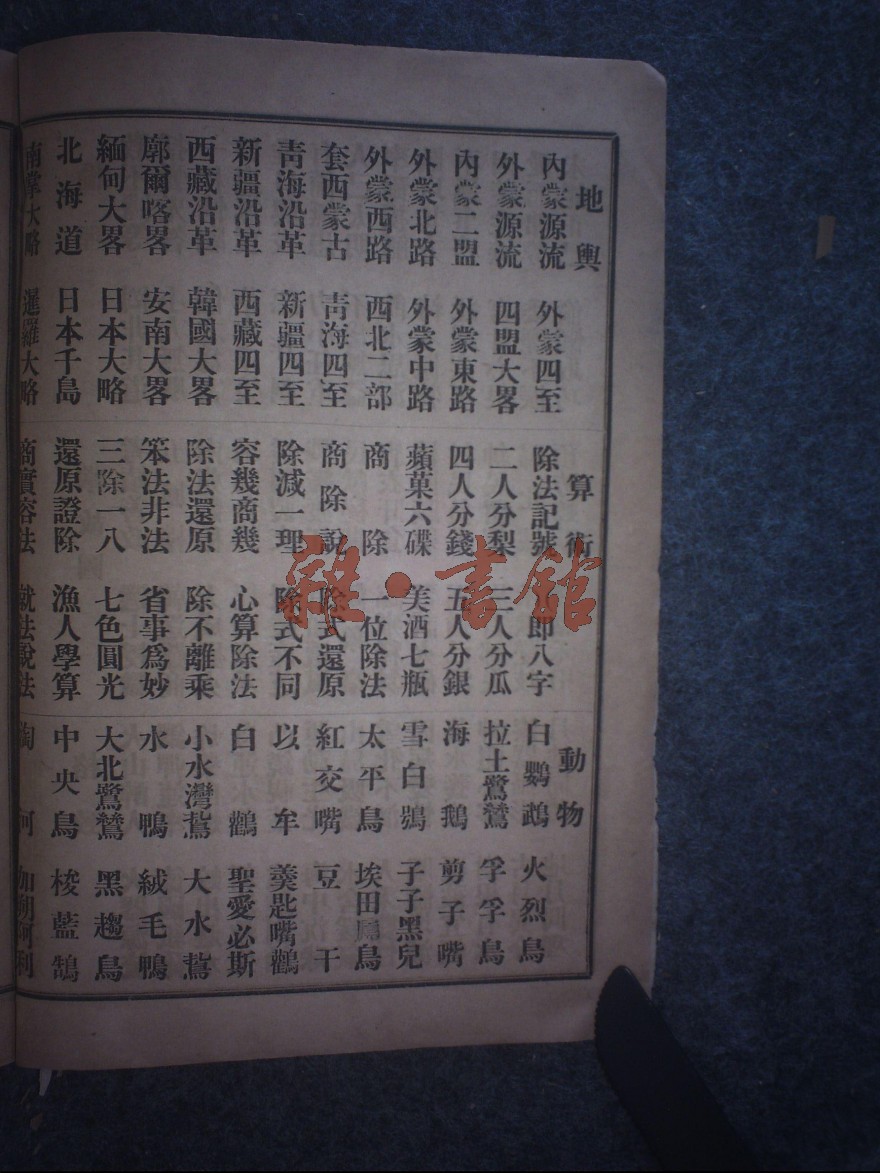 地輿
內蒙源流 外蒙四至
外蒙源流 四盟大畧
內蒙二盟 外蒙東路
外蒙北路 外蒙中路
外蒙西路 西北二部
套西蒙古 靑海四至
靑海沿革 新疆四至
新疆沿革 西藏四至
西藏沿革 韓國大畧
廓爾喀畧 安南大畧
緬甸大畧 日本大略
北海道 日本千島
南掌大略 暹羅大略
算術
除法記號 卽八字
二人分梨 三人分瓜
四人分錢 五人分銀
蘋菓六碟 美酒七瓶
商除 一位除法
商除說 除式還原
除減一理 除式不同
容幾商幾 心算除法
除法還原 除不離乘
笨法非法 省事爲妙
三除一八 七色圓光
還原證除 漁人學算
商實容法 就法說法
動物
白鸚鵡 火烈鳥
拉土鷺鷥 孚孚鳥
海鵝 剪子嘴
雪白鴞 子子黑兒
太平鳥 埃田鳥
紅交嘴 豆干
以牟 羹匙嘴鸛
白鸛 聖愛必斯
小水灣鷔 大水鷔
水鴨 絨毛鴨
大北鷺鷥 黑趨鳥
中央鳥 梭藍鵠
陶何 加朔阿利
雜·書館